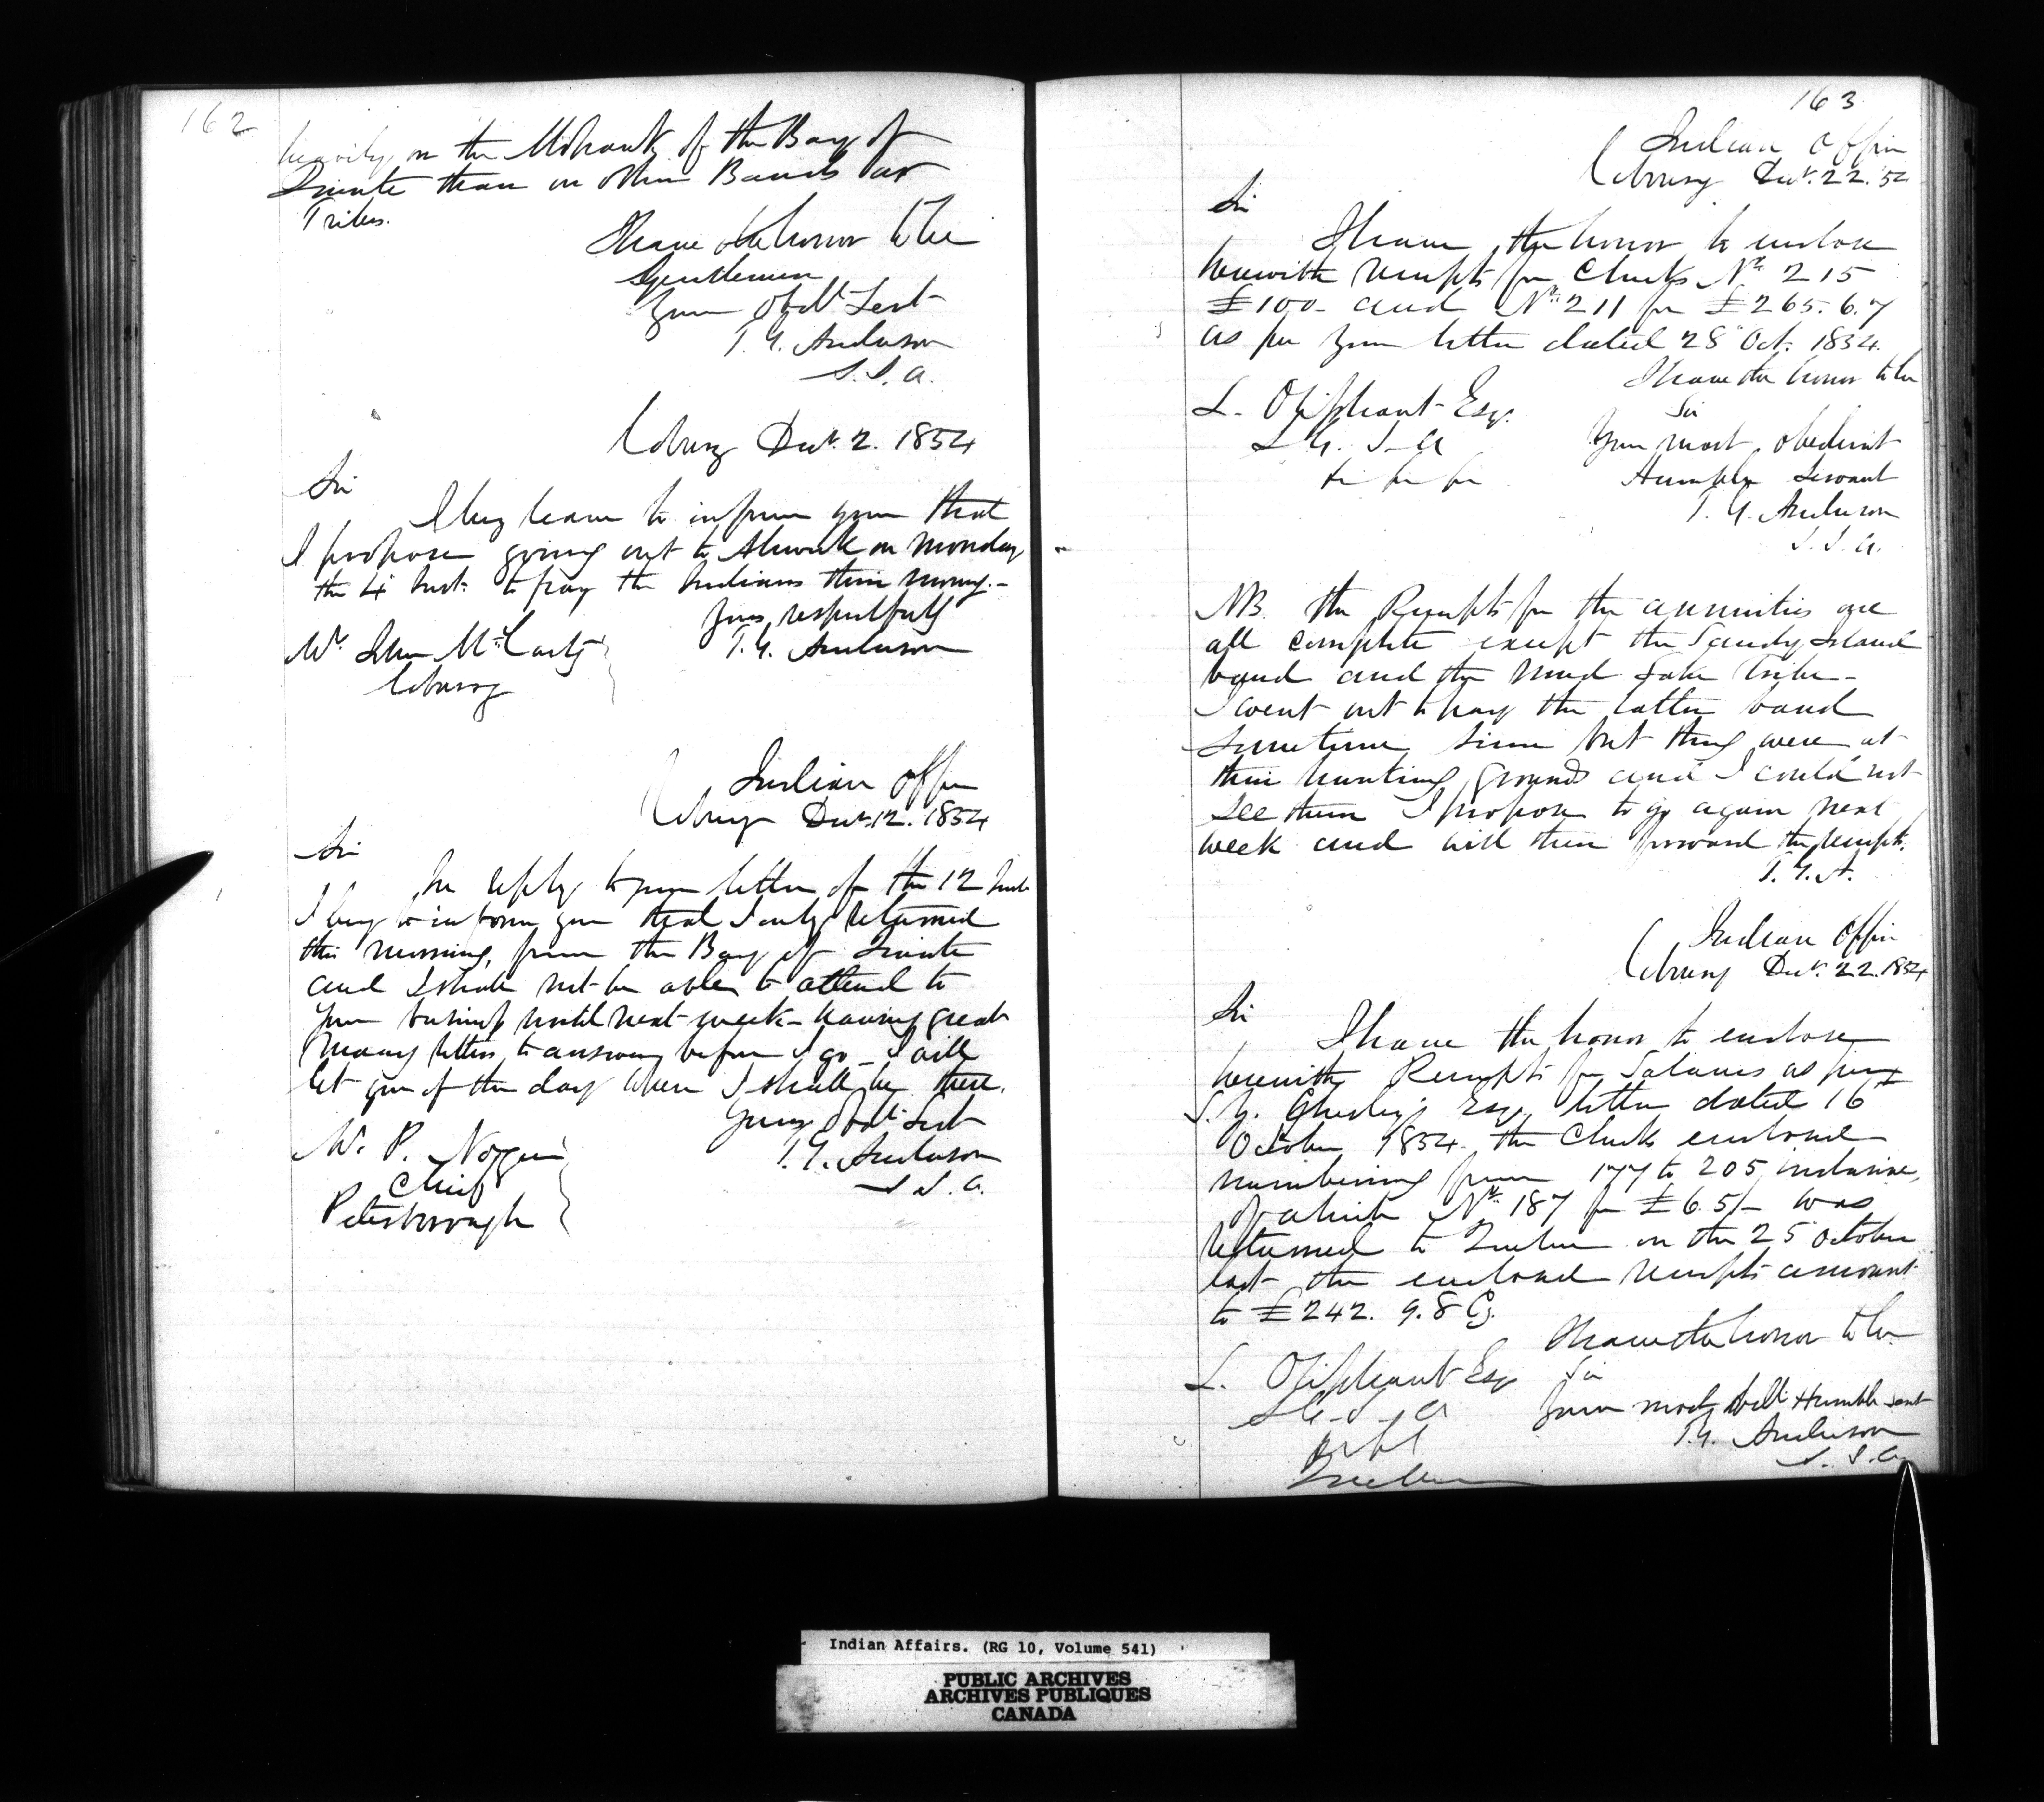 162
heavily on the Mohawks of the Bay of
Quinte than on other Bands or
Tribes.
I have the honor to be
Gentlemen
Your Obdt Sert
T. G. Anderson
S. I. A.
Cobourg Decr. 2. 1854
Sir
I beg leave to inform you that
I propose going out to Alnwick on Monday
the 4 Inst. to pay the Indians their money.-
Yours respectfully
T. G. Anderson
Mr. John McCarty
Cobourg
Indian Office
Cobourg Decr. 12. 1854
Sir
In reply to your letter of the 12 Inst
I beg to inform you that I only returned
this morning, from the Bay of Quinte
and I shall not be able to attend to
your business until next week - having great
many letters to answer before I go - I will
let you of the day when I shall be there.
Yours Obdt Sert
T. G. Anderson
S. I. A.
Mr. P. Nogie
Chief
Peterborough
163
Indian Office
Cobourg Decr. 22. 54
Sir
I have the honor to enclose
herewith receipts for Checks No. 215
£100- and No. 211 for £265.6.7
as per your letter dated 28 Oct. 1854.
I have the honor to be
Sir
Your most obedient
Humble Servant
T. G. Anderson
S. I. A.
L. Oliphant Esq.
S. G. I. A
NB. the Receipts for the annuities are
all complete except the Sandy Island
band and the Mud Lake Tribe -
I went out to pay the latter band
sometime since but they were at
their hunting grounds and I could not
see them I propose to go again next
week and will then forward the receipts.
T. G. A.
Indian Office
Cobourg Decr. 22. 1854
Sir
I have the honor to enclose
herewith Receipts for Salaries as per
S. Y. Chesley's Esq. letter dated 16
October 1854. the Checks enclosed
numbering from 177 to 205 inclusive,
of which No. 187 for £6.5/- was
returned to Quebec on the 25 October
last the enclosed receipts amount
to £242. 9.8 Cy.
I have the honor to be
Sir
Your most Obdt Humble Sert
T. G. Anderson
S. I. A.
L. Oliphant Esq
S. G. I. A
Quebec
Indian Affairs. (RG 10, Volume 541)
PUBLIC ARCHIVES
ARCHIVES PUBLIQUES
CANADA